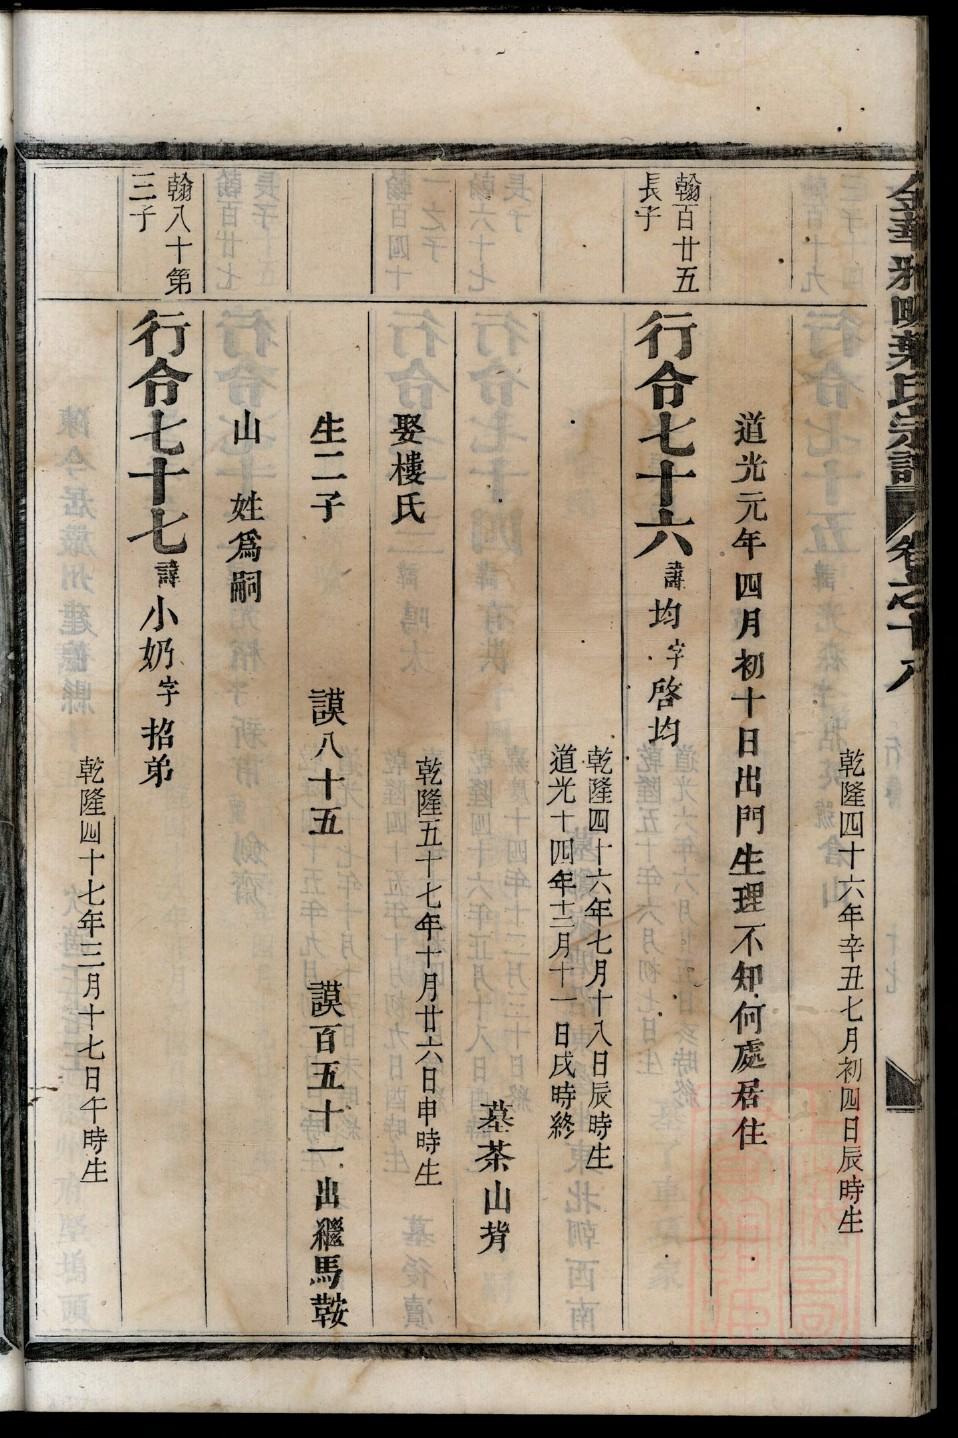 金華雅畈葉氏宗譜 卷之十八
乾隆四十六年辛丑七月初四日辰時生
道光元年四月初十日出門生理不知何處居住
翰百廿五
長子
行令七十六 諱均字啓均
乾隆四十六年七月十八日辰時生
道光十四年十二月十一日戌時終
墓茶山背
娶樓氏
乾隆五十七年十月廿六日申時生
生二子 謨八十五 謨百五十一出繼馬鞍
山 姓爲嗣
翰八十第
三子
行令七十七 諱小奶字招弟
乾隆四十七年三月十七日午時生